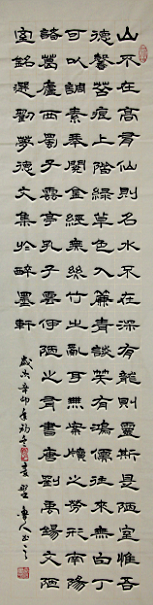 山不在高有仙則名水不在深有龍則靈斯是陋室惟吾
德馨苔痕上階綠草色入簾青談笑有鴻儒往來無白丁
可以調素琴閱金經無絲竹之亂耳無案牘之勞形南陽
諸葛廬西蜀子雲亭孔子雲何陋之有書唐劉禹錫文陋
室銘選劉夢德文集於醉墨軒
歲次辛卯年初冬